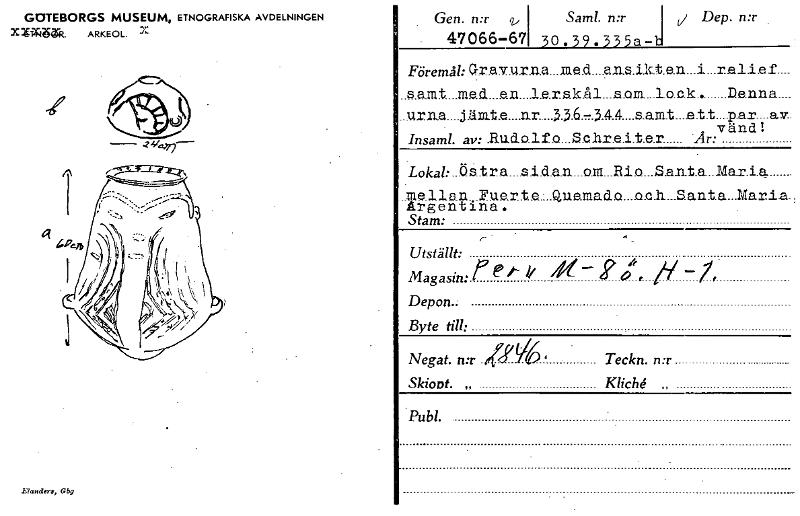 GÖTEBORGS MUSEUM, ETNOGRAFISKA AVDELNINGEN
ARKEOL. X
b
24cm
a
60cm
Elanders, Gbg
Gen. n:r
Saml. n:r
Dep. n:r
47066-67
30.39.335a-b
Föremål: Gravurna med ansikten i relief
samt med en lerskål som lock. Denna
urna jämte nr 336-344 samt ett par av
vänd!
Insaml. av: Rudolfo Schreiter År:
Lokal: Östra sidan om Rio Santa Maria
mellan Fuerte Quemado och Santa Maria
Argentina.
Stam:
Utställt:
Magasin: Peru M-8ö. H-1.
Depon..
Byte till:
Negat. n:r 2846. Teckn. n:r
Skiopt. „ Kliché „
Publ.